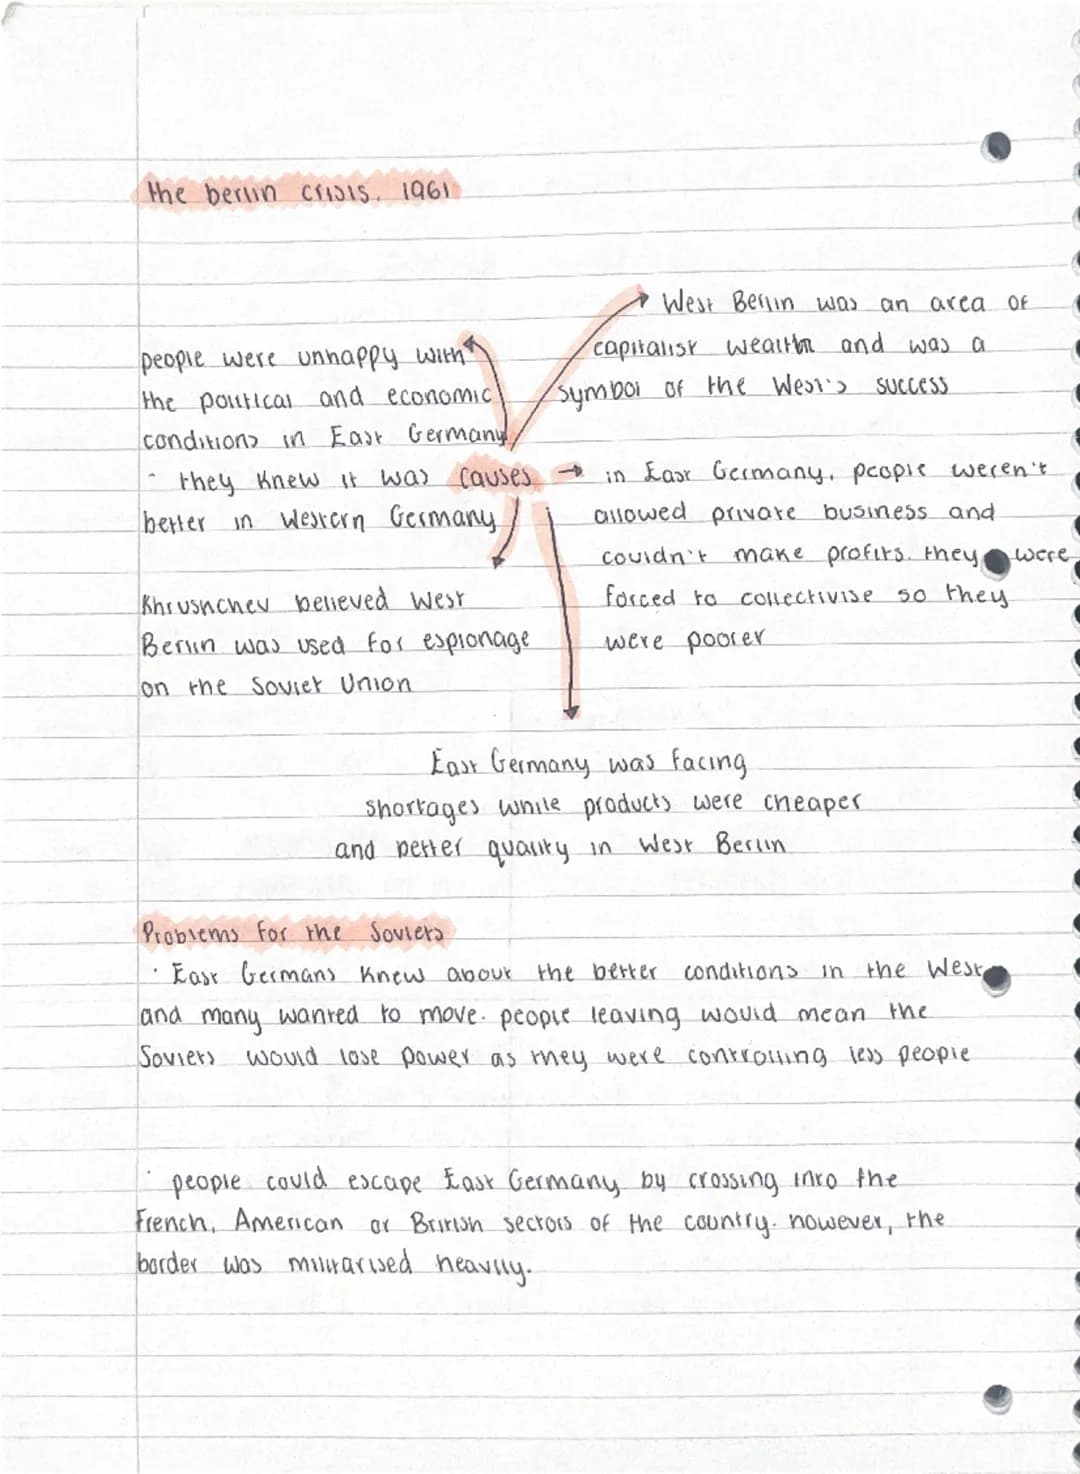 the berlin crisis, 1961
people were unhappy with
the political and economic
conditions in East Germany
- they knew it was
better in Western Germany
causes
West Berlin was an area of
capitalist wealth and was a
symbol of the West's success
in East Germany, people weren't
allowed private business and
couldn't make profits. they were
forced to collectivise so they
were poorer
Khrushchev believed West
Berlin was used for espionage
on the Soviet Union
East Germany was facing
shortages while products were cheaper
and better quality in West Berlin
Problems for the Soviets
· East Germans knew about the better conditions in the West
and many wanted to move. people leaving would mean the
Soviets would lose power as they were controlling less people
· people could escape East Germany by crossing into the
French, American or British sectors of the country. however, the
border was militarised heavily.